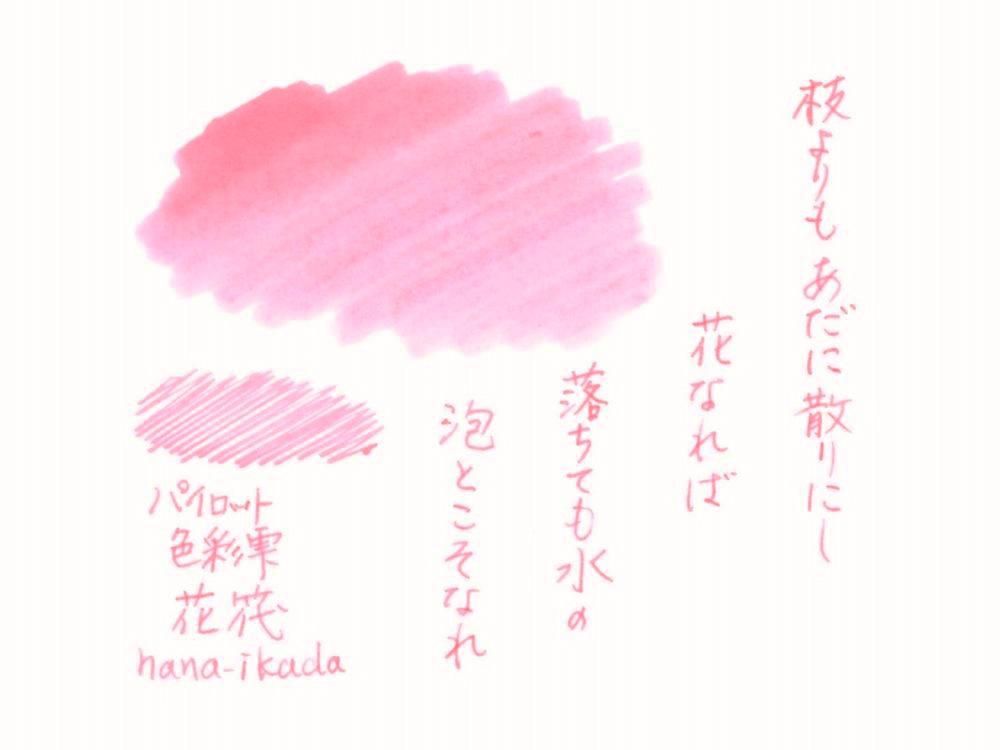 枝よりもあだに散りにし
花なれば
落ちても水の
泡とこそなれ
パイロット
色彩雫
花筏
hana-ikada